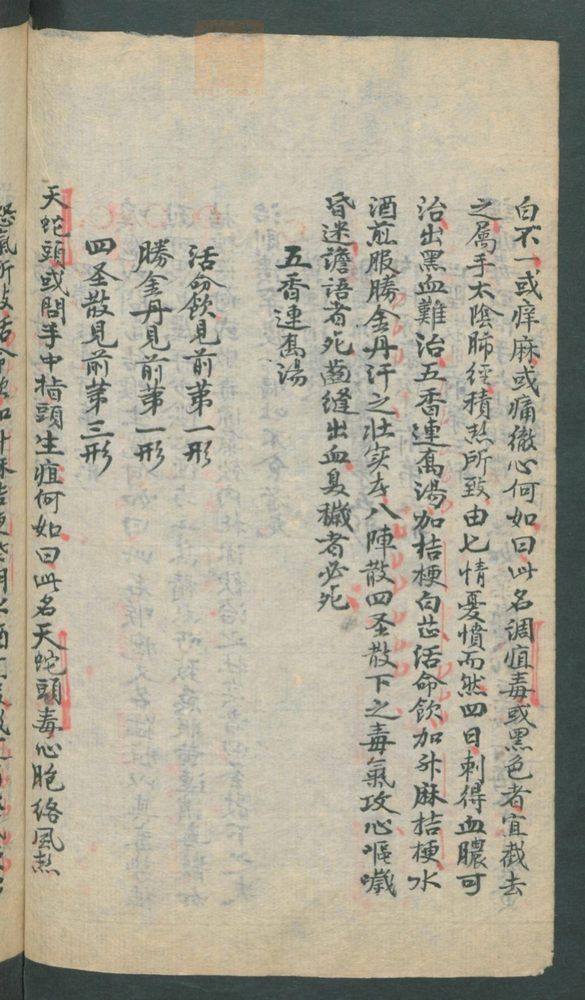 白不一或痒麻或痛徹心何如曰此名調疽毒或黑色者宜截去
之屬手太陰肺經積热所致由七情憂憤而然四日刺得血膿可
治出黑血難治五香連翹湯加桔梗白芷活命飲加升麻桔梗水
酒煎服勝金丹汗之壯实者八陣散四圣散下之毒氣攻心嘔噦
昏迷譫語者死齒縫出血臭穢者必死
五香連翹湯
活命飲見前苐一形
勝金丹見前苐一形
四圣散見前苐三形
天蛇頭或問手中指頭生疽何如曰此名天蛇頭毒心胞絡風热